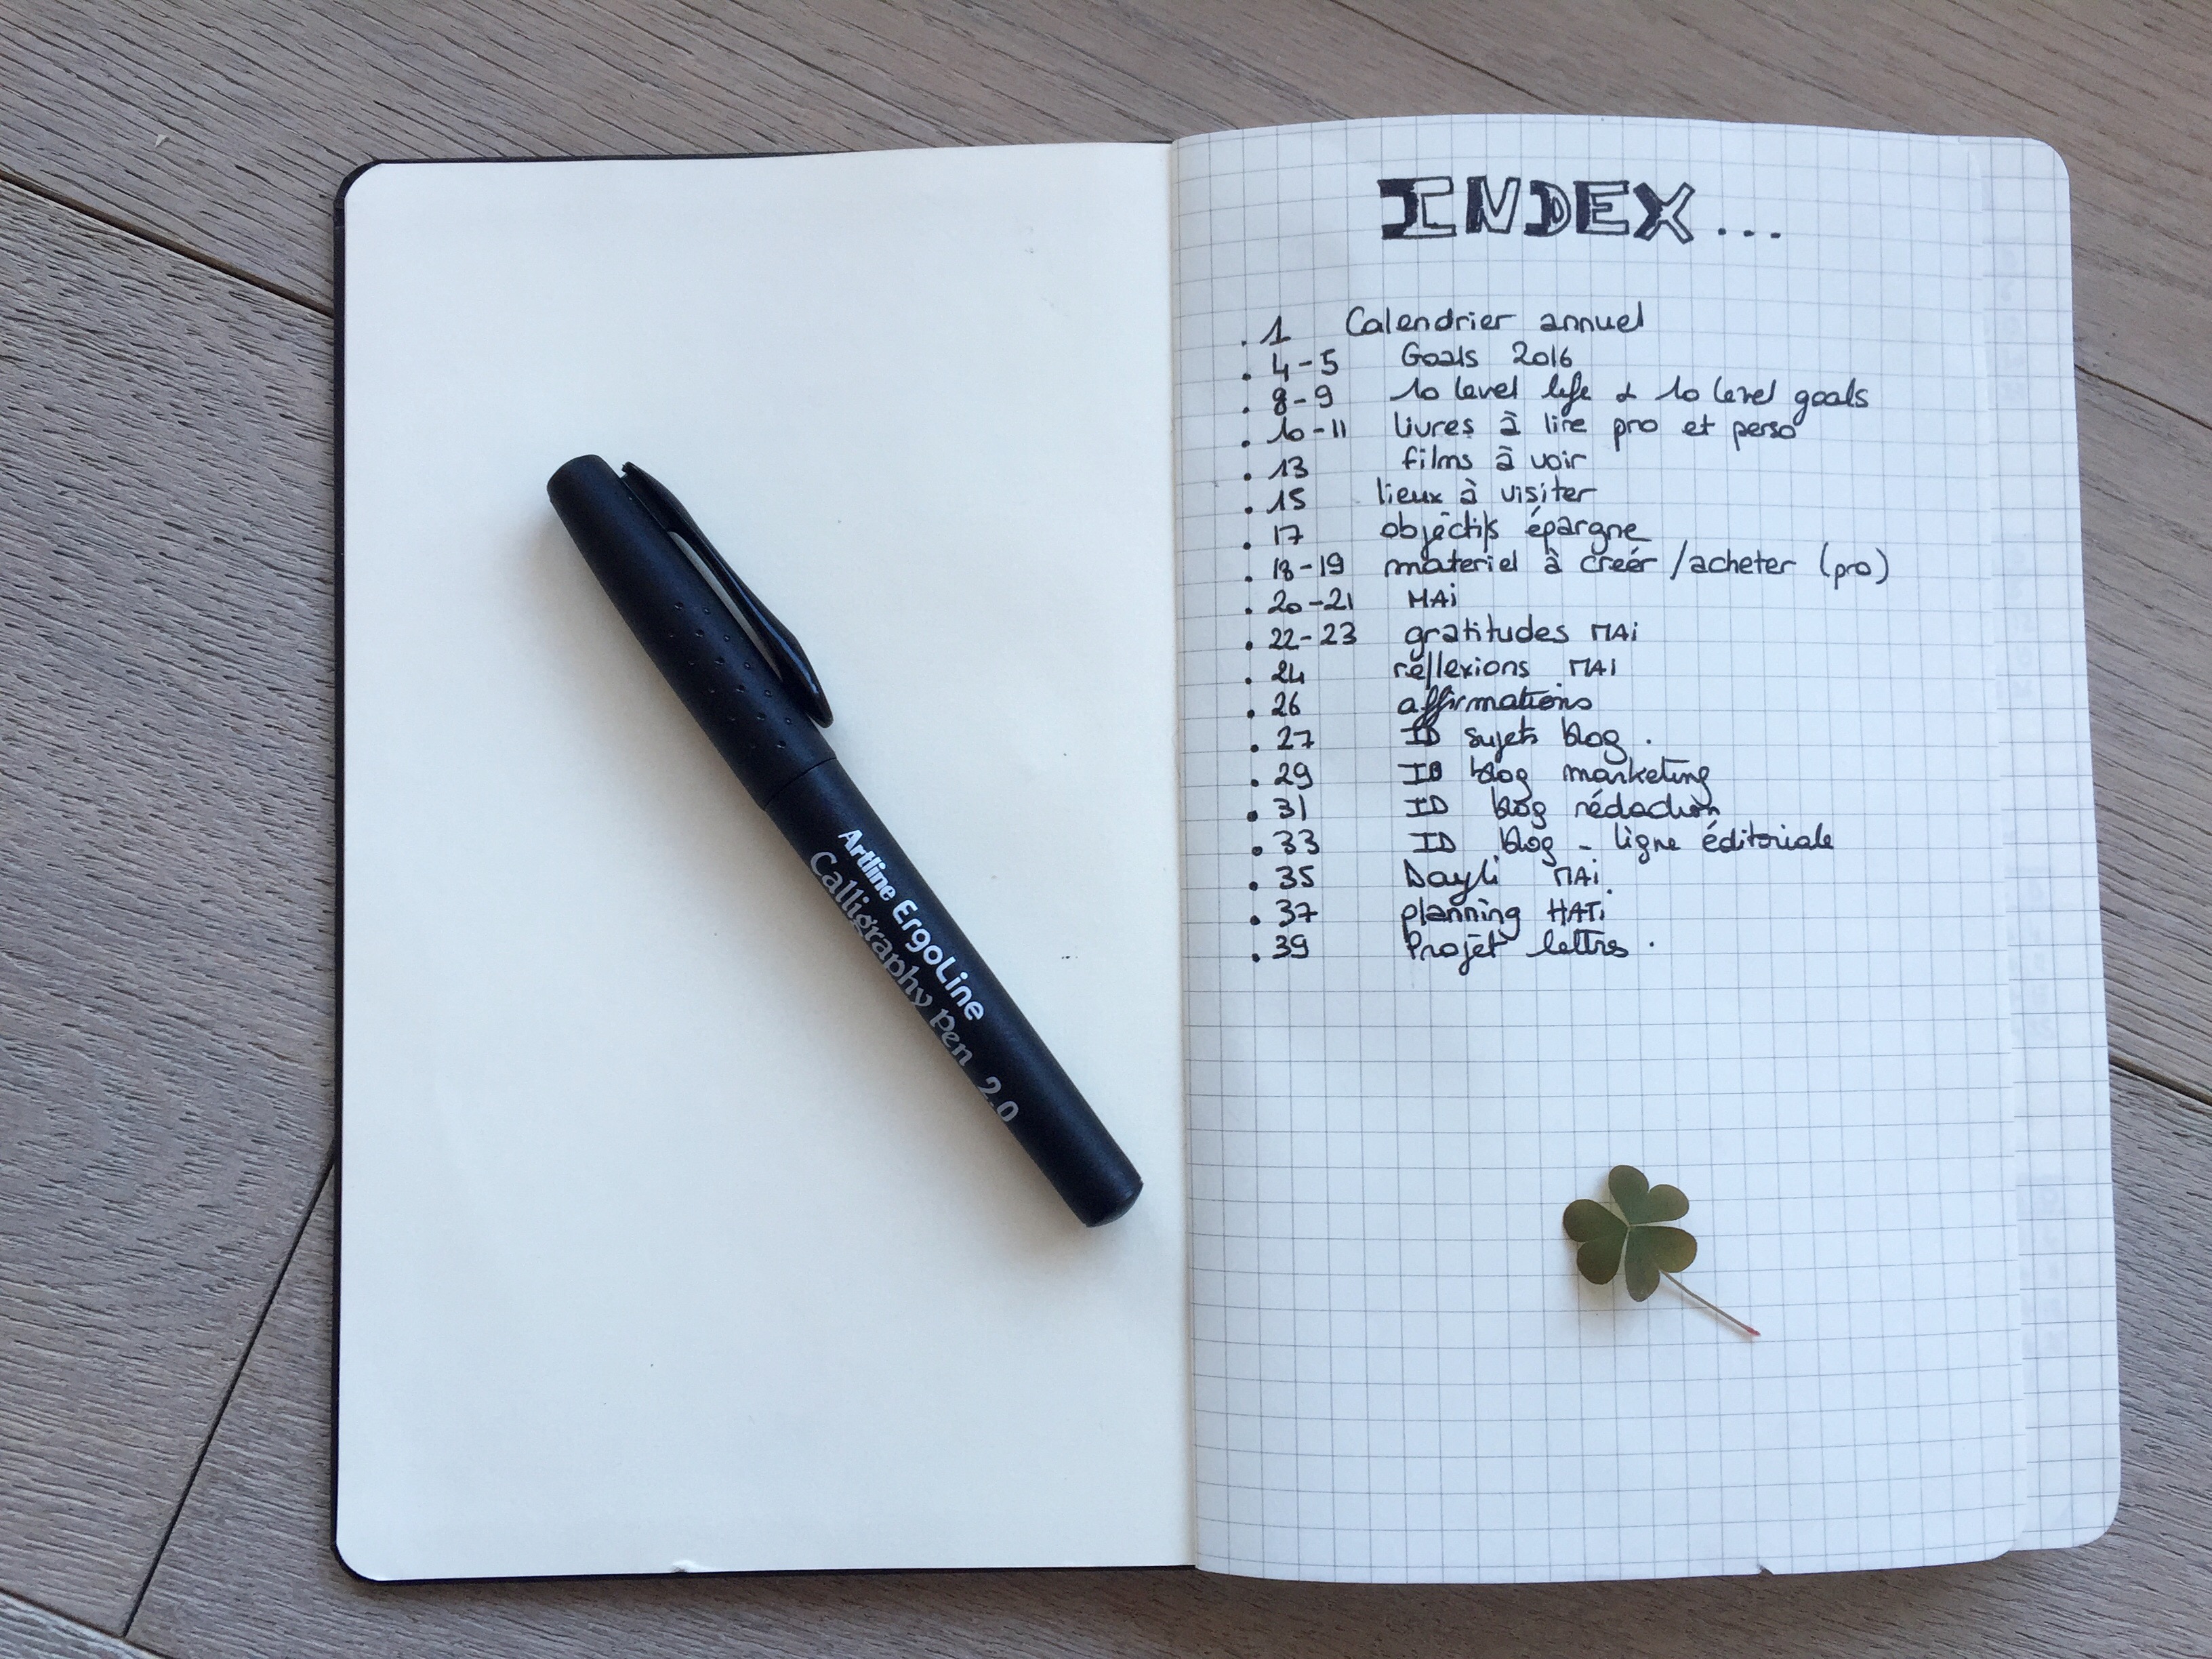 Artline ErgoLine
Calligraphy Pen 2.0
INDEX...
. 1 Calendrier annuel
. 4-5 Goals 2016
. 8-9 10 level life & 10 level goals
. 10-11 livres à lire pro et perso
. 13 films à voir
. 15 lieux à visiter
. 17 objectifs épargne
. 18-19 materiel à créer / acheter (pro)
. 20-21 MAi
. 22-23 gratitudes MAi
. 24 réflexions MAI
. 26 affirmations
. 27 ID sujets blog.
. 29 ID blog marketing
. 31 ID blog rédaction
. 33 ID blog - ligne éditoriale
. 35 Dayli MAi
. 37 planning
. 39 Projet lettres.